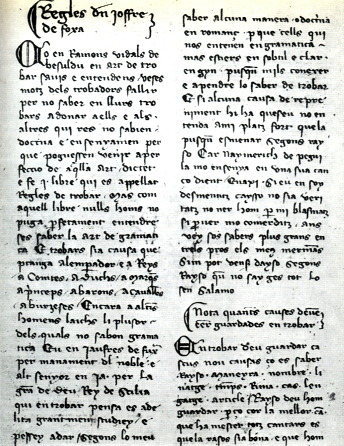 Regles dn Joffre
de foxa
O lo en Ramons vidals de
besuldu en art de tro
bar sauis e entendens / veses
motz dels trobadors fallir
per no saber en llurs tro
bars adonar aells e als.
altres qui res no sabien.
doctrina e ensenyament per
que poguessen venir a per
feccio de aqlla art. dictet
e fe .j. libre qui es appellat
Regles de trobar. Mas com
aquell libre nulls homs no
puga perfetament entendre
ses saber la art de gramati
ca E trobars sia causa que
ptanga alemperador e a Reys
a Comtes. a duchs. a marqs
a princeps. a barons. a cauallrs
a burzeses. Encara a altrs
homens laichs li plusor
dels quals no sabon grama
tica Eu en Jaufres de fux
per manament del noble. e
alt senyor en Ja. per La
gra de deu Rey de Sicilia
que en trobar pensa es ade
lita grantment studiey. e
pessey adar segons lo meu
saber alcuna manera. o doctrina
en romanç. p que cells qui
nos entenen en gramatica
mas esters an sobtil e clar
en gyn. pusqn mils conexer
e apendre lo saber de trobar
E si alcuna causa de repre
niment hi ha que seu no en
tenda ami platz fort quela
pusqn esmenar segons ray
so Car naymerich de pegui
la mo ensenya en una sua can
co dient Enaxi. Si eu en soy
desmentitz cayso no sia veri
tatz no ner hom p mi blasmatz
si p uer mo comerditz. ans
vey sos sabers plus grans en
sim pot vens dayso segons
Rayso qn no say ges tot lo
sen Salamo
Nota quants causes deue
esser guardades en trobar
En trobar deu guardar ca
usas non causas co es saber
Rayso. Maneyra. nombre. li
natge. temps. Rima. cas. len
gatge. article / Rayso deu hom
guardar. p ço car la mellor ca
que ha mester totz cantars es
quela raso sia bona. e que hom